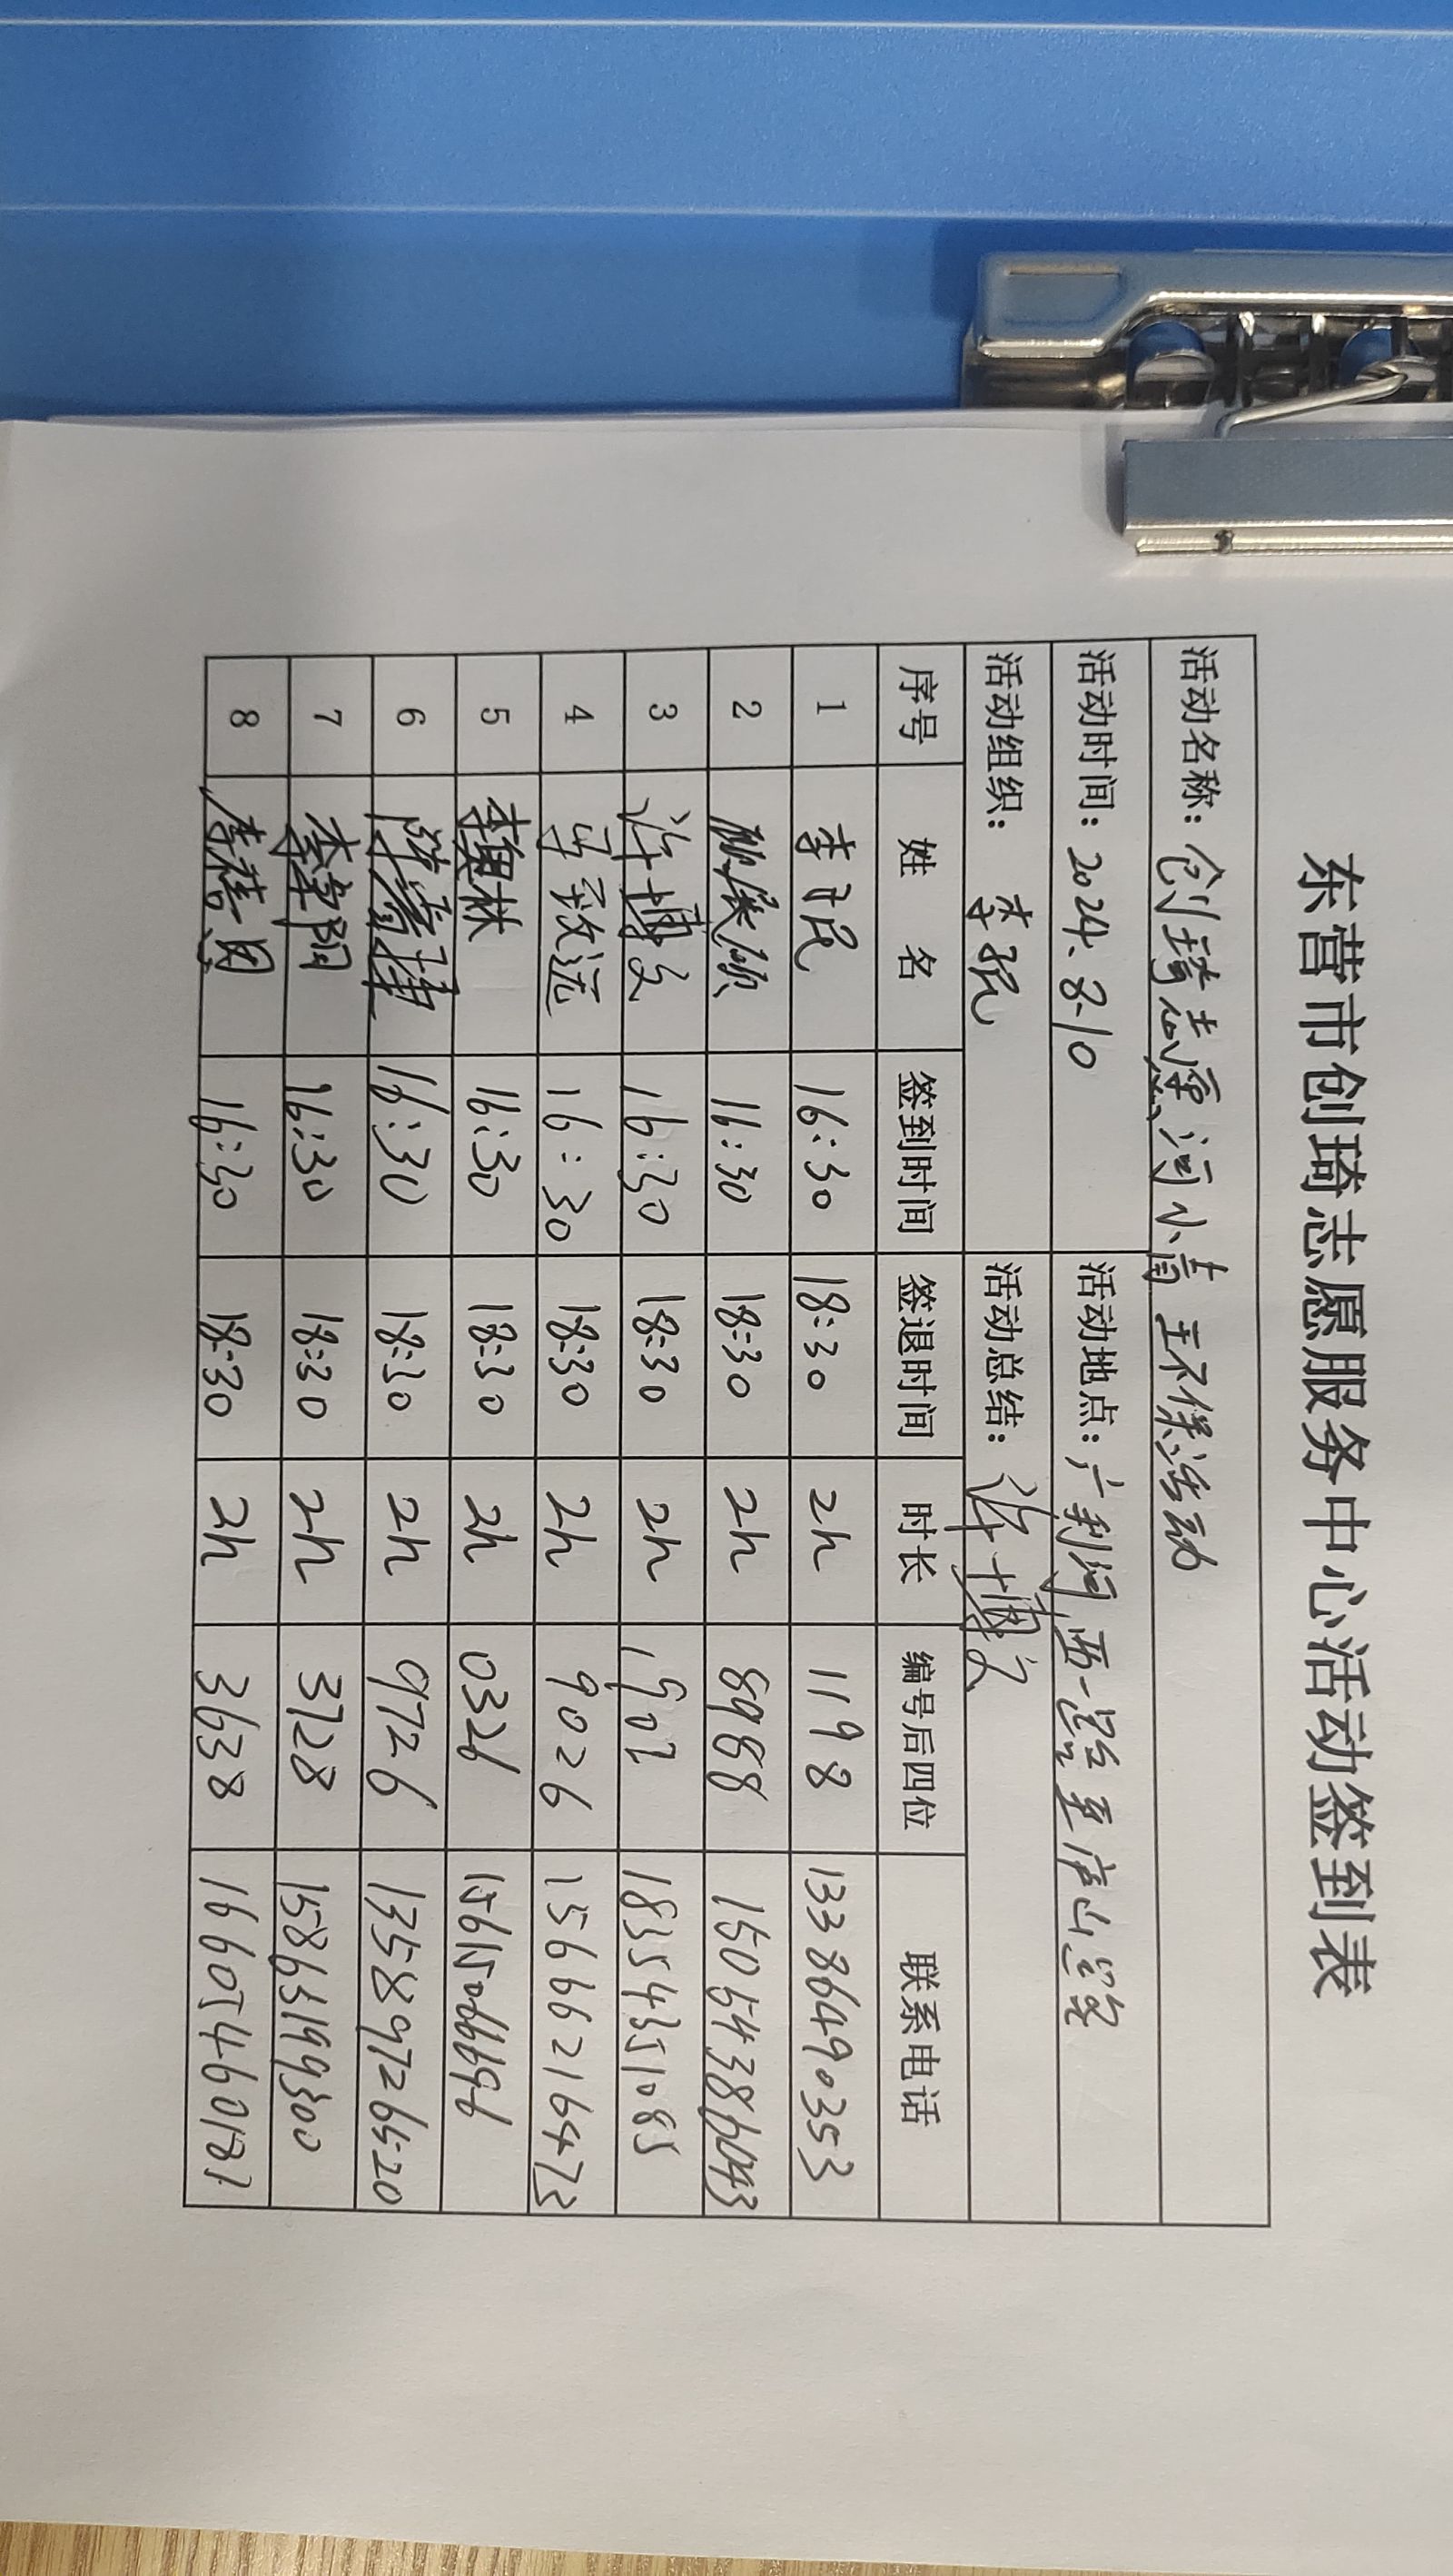 东营市创琦志愿服务中心活动签到表
活动名称：创琦志愿 河小青 主不保活动
活动时间：2024.8.10 活动地点：广利河西一路至庐山路
活动组织：李 活动总结：许博文
序号 姓名 签到时间 签退时间 时长 编号后四位 联系电话
1 李 16:30 18:30 2h 1198 13386490353
2 16:30 18:30 2h 8988
3 许博文 16:30 18:30 2h 1902 18354351085
4 马致远 16:30 18:30 2h 9026 15666216473
5 李奥林 16:30 18:30 2h 0326 15615066696
6 16:30 18:30 2h 9726 13589726520
7 李 16:30 18:30 2h 3728 15863199300
8 李 16:30 18:30 2h 3638 16605460187